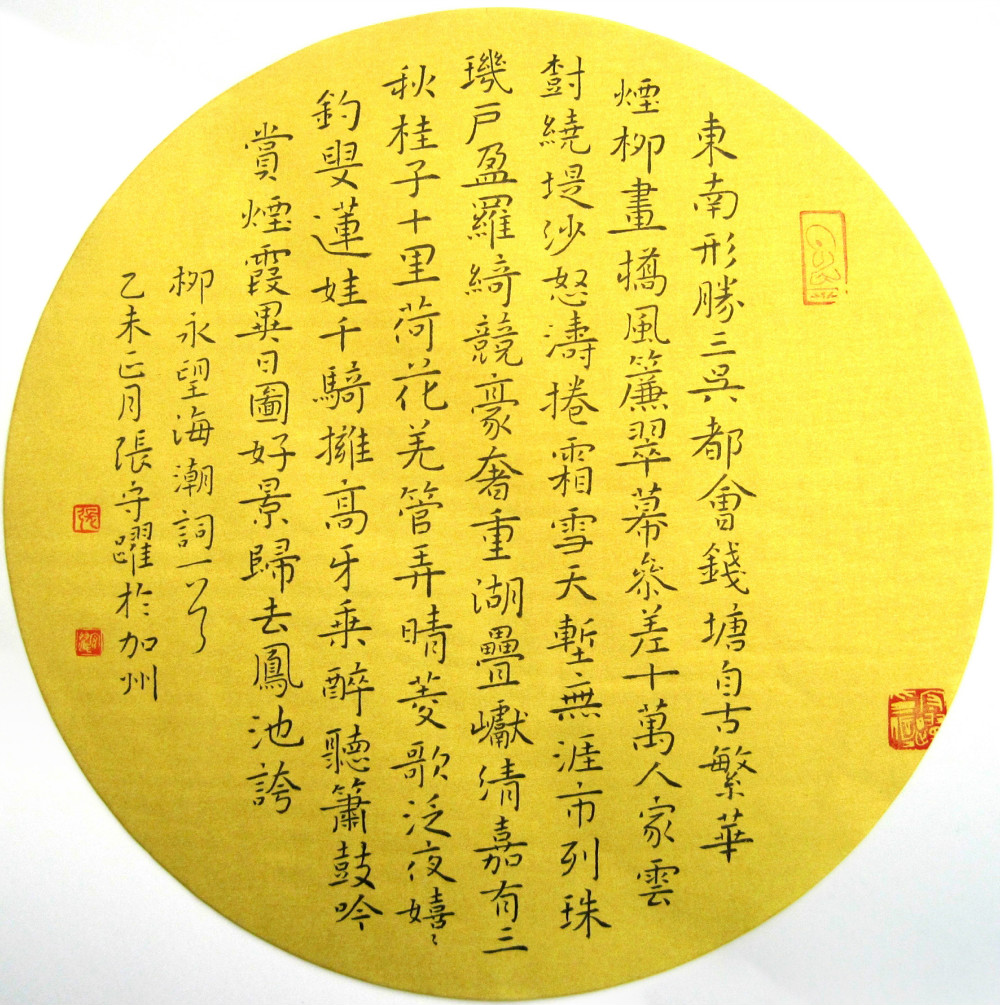 東南形勝三吳都會錢塘自古繁華
煙柳畫橋風簾翠幕參差十萬人家雲
樹繞堤沙怒濤捲霜雪天塹無涯市列珠
璣戶盈羅綺競豪奢重湖疊巘清嘉有三
秋桂子十里荷花羌管弄晴菱歌泛夜嬉〻
釣叟蓮娃千騎擁高牙乘醉聽簫鼓吟
賞煙霞異日圖好景歸去鳳池誇
柳永望海潮詞一首
乙未正月張守躍於加州
張